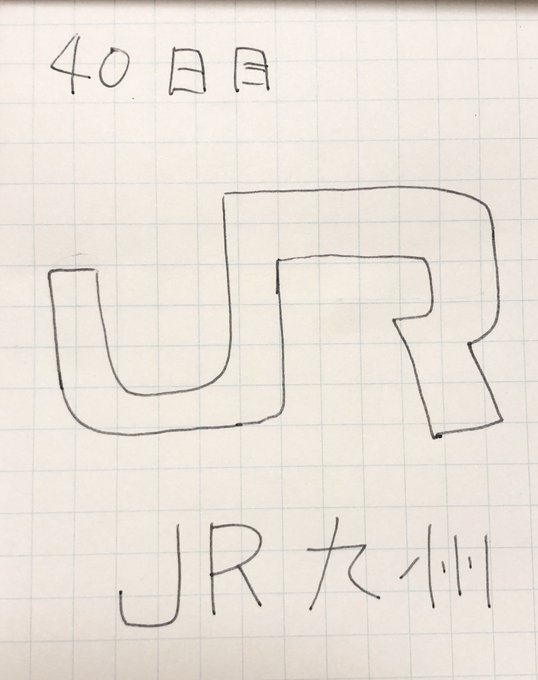 40日目
JR
JR九州